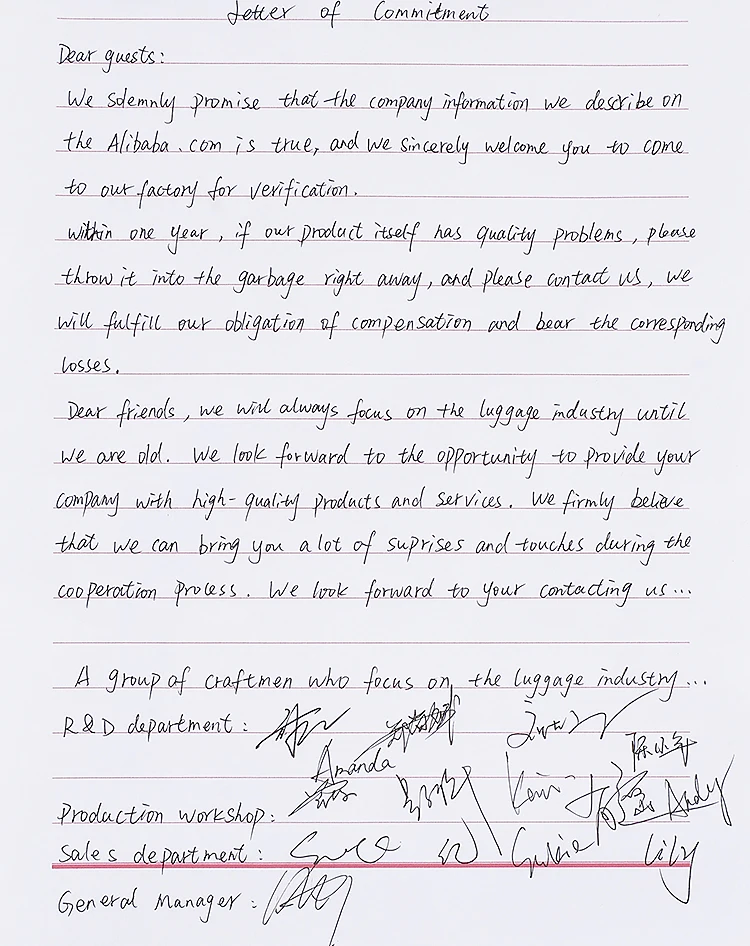 Letter of Commitment
Dear guests:
We solemnly promise that the company information we describe on
the Alibaba.com is true, and we sincerely welcome you to come
to our factory for verification.
within one year, if our product itself has quality problems, please
throw it into the garbage right away, and please contact us, we
will fulfill our obligation of compensation and bear the corresponding
losses.
Dear friends, we will always focus on the luggage industry until
we are old. We look forward to the opportunity to provide your
company with high-quality products and services. We firmly believe
that we can bring you a lot of suprises and touches during the
cooperation process. We look forward to your contacting us...
A group of craftmen who focus on the luggage industry...
R&D department:
Amanda
Production workshop: Andy
Sales department: Lily
General Manager: